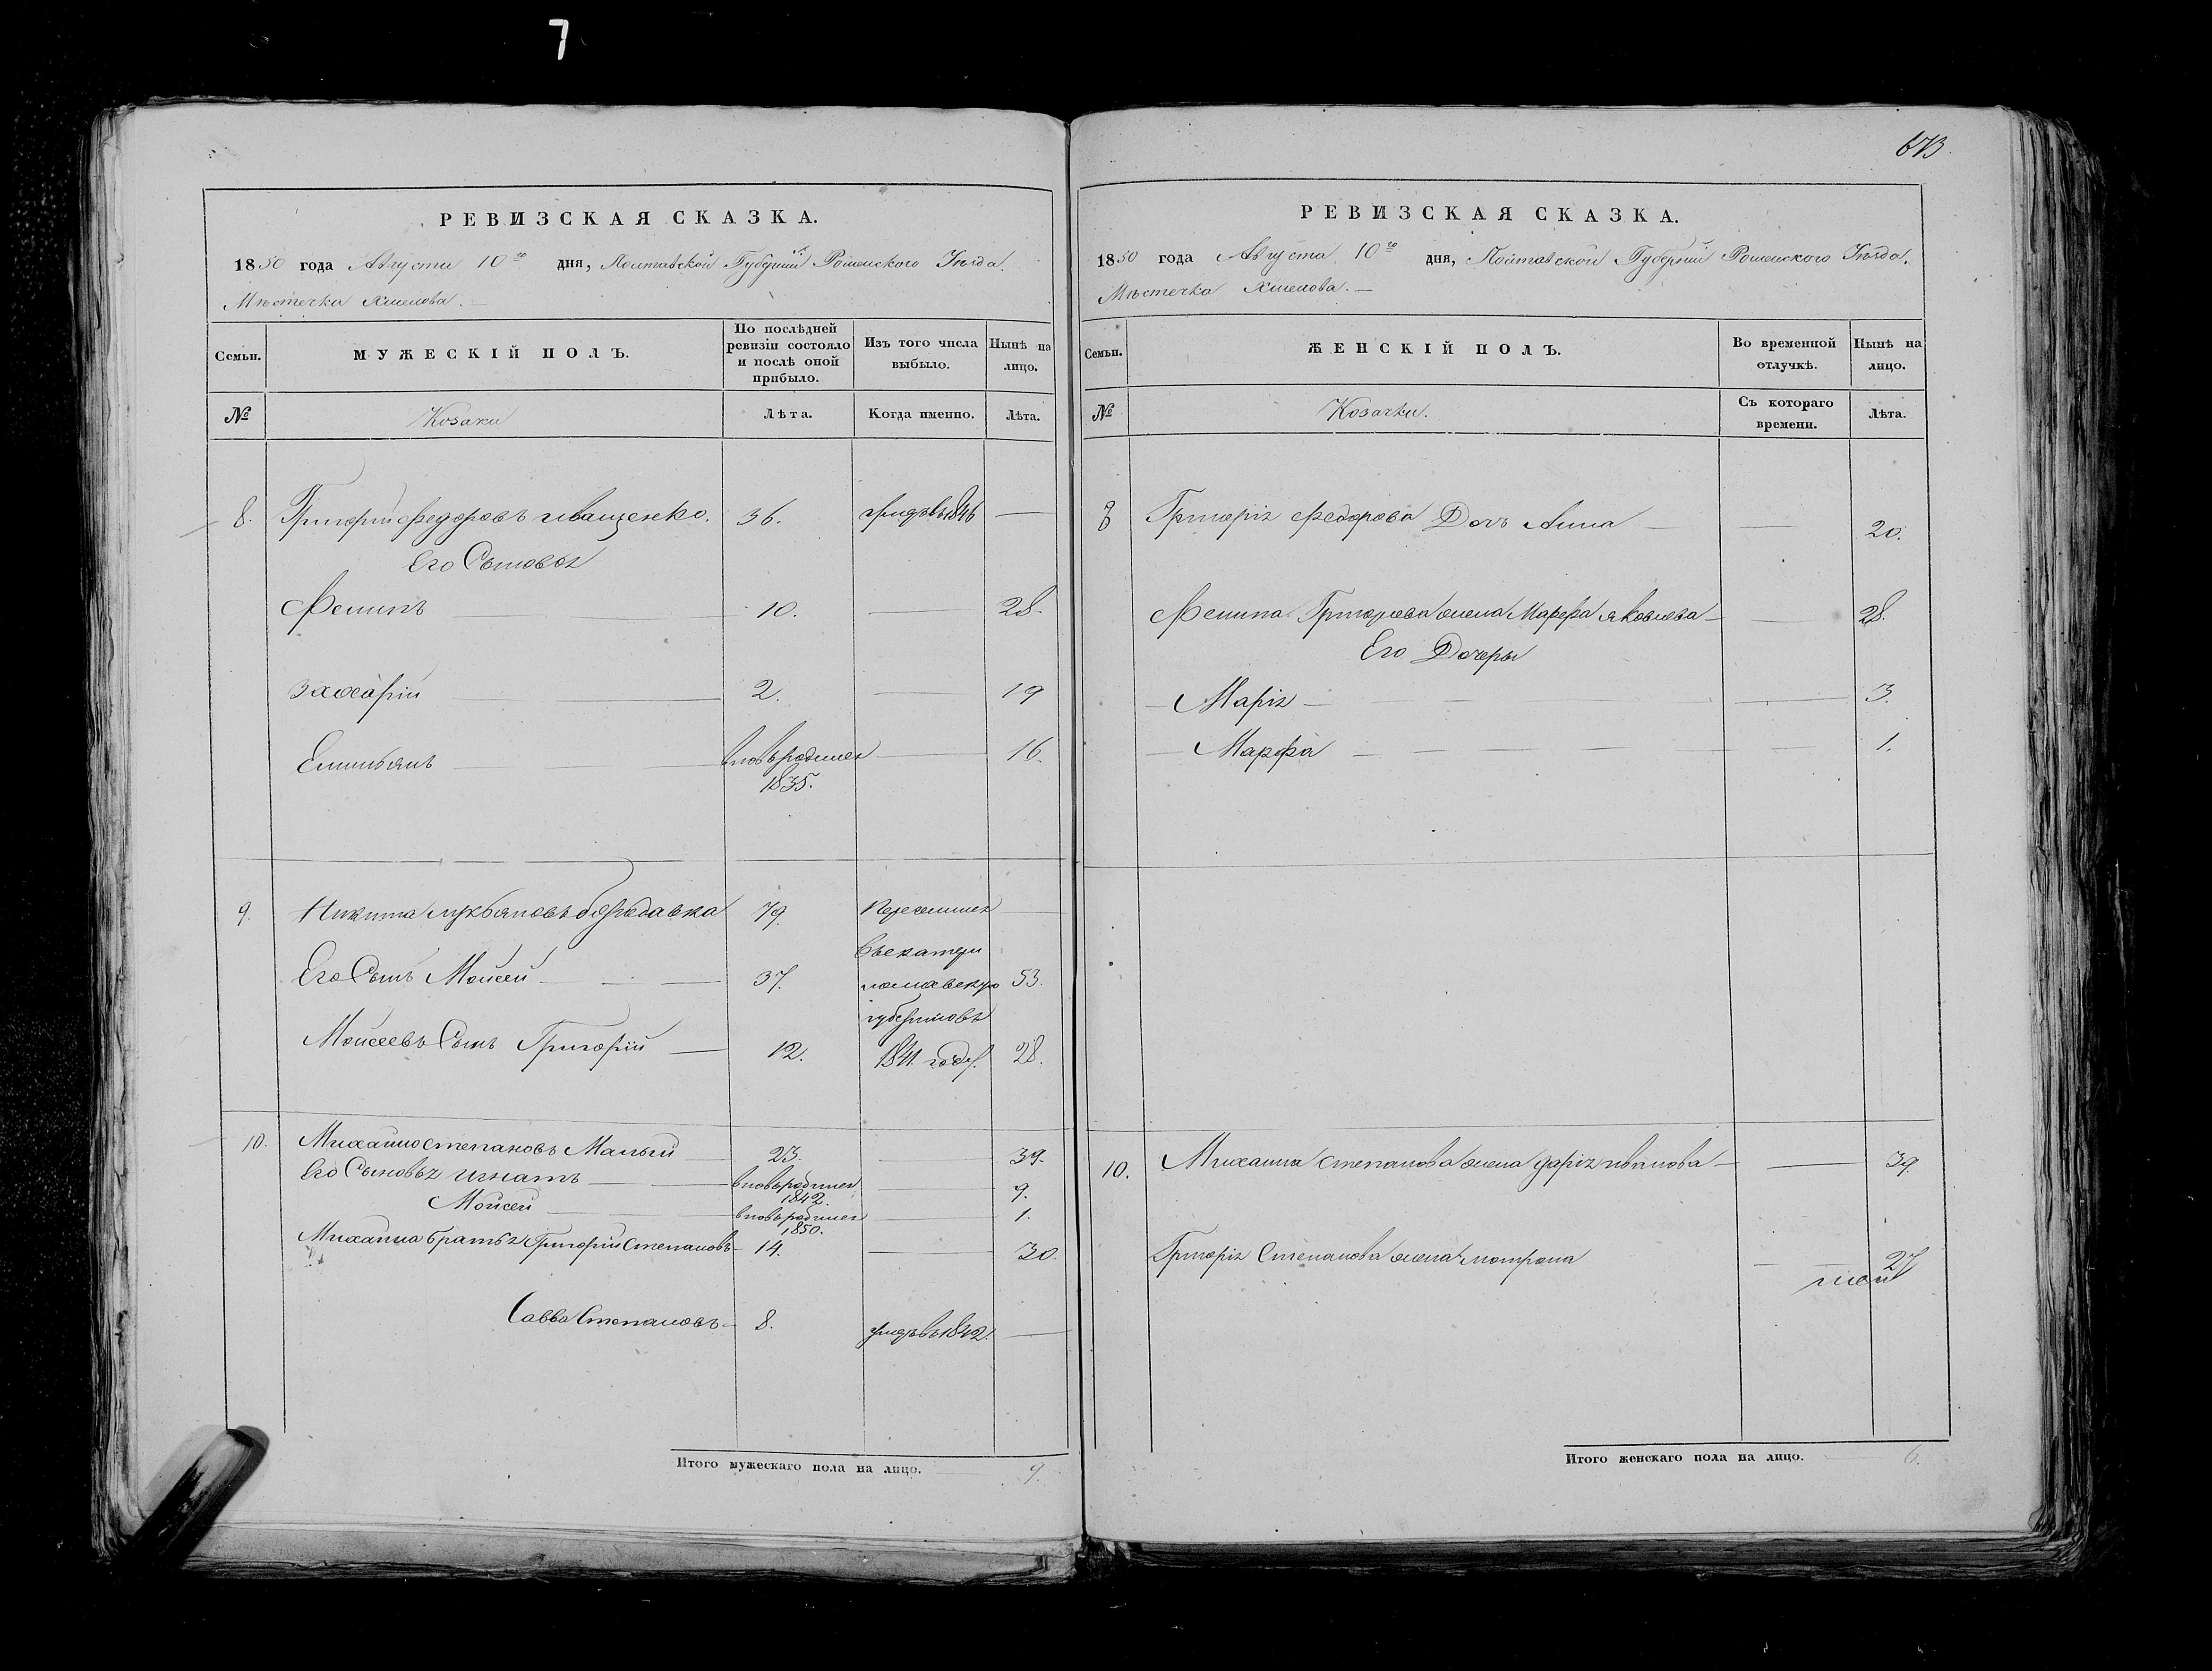 7
673.
РЕВИЗСКАЯ СКАЗКА.
1850 года Августа 10го дня, Полтавской Губернiи Роменского Уѣзда.
Мѣстечка Хмелова.
Семьи. МУЖЕСКIЙ ПОЛЪ. По послѣдней ревизiи состояло и послѣ оной прибыло. Изъ того числа выбыло. Нынѣ на лицо.
№ Козаки Лѣта. Когда именно. Лѣта.
8. Григорiй Федоровъ Иващенко. 36. умеръ въ 1846 —
Его Сыновья
Филипъ 10. — 28.
Захарiй 2. — 19
Емильянъ вновь родился 1835. — 16.
9. Никита Лукьяновъ 79. Переселился —
Его Сынъ Мойсей 37. Въ Екатери 53.
нославскую
Мойсеевъ Сынъ Григорiй 12. губернiю въ 28.
1841 году.
10. Михайло Степановъ Малый 23. — 39.
Его Сыновья Игнатъ вновь родился 1842. — 9.
Мойсей вновь родился 1850. — 1.
Михайла братья Григорiй Степановъ 14. — 30.
Савва Степановъ 8. умеръ въ 1842. —
Итого мужескаго пола на лицо. 9.
РЕВИЗСКАЯ СКАЗКА.
1850 года Августа 10го дня, Полтавской Губернiи Роменского Уѣзда.
Мѣстечка Хмелова. —
Семьи. ЖЕНСКIЙ ПОЛЪ. Во временной отлучкѣ. Нынѣ на лицо.
№ Козачки. Съ котораго времени. Лѣта.
8 Григорiя Федорова Дочь Анна — 20.
Филипа Григорьева жена Марфа Яковлева — 28.
Его Дочеры
Марiя — 3.
Марфа — 1.
10. Михайла Степанова жена Дарiя Иванова — 39.
Григорiя Степанова жена Мотрона — 27
Итого женскаго пола на лицо. 6.